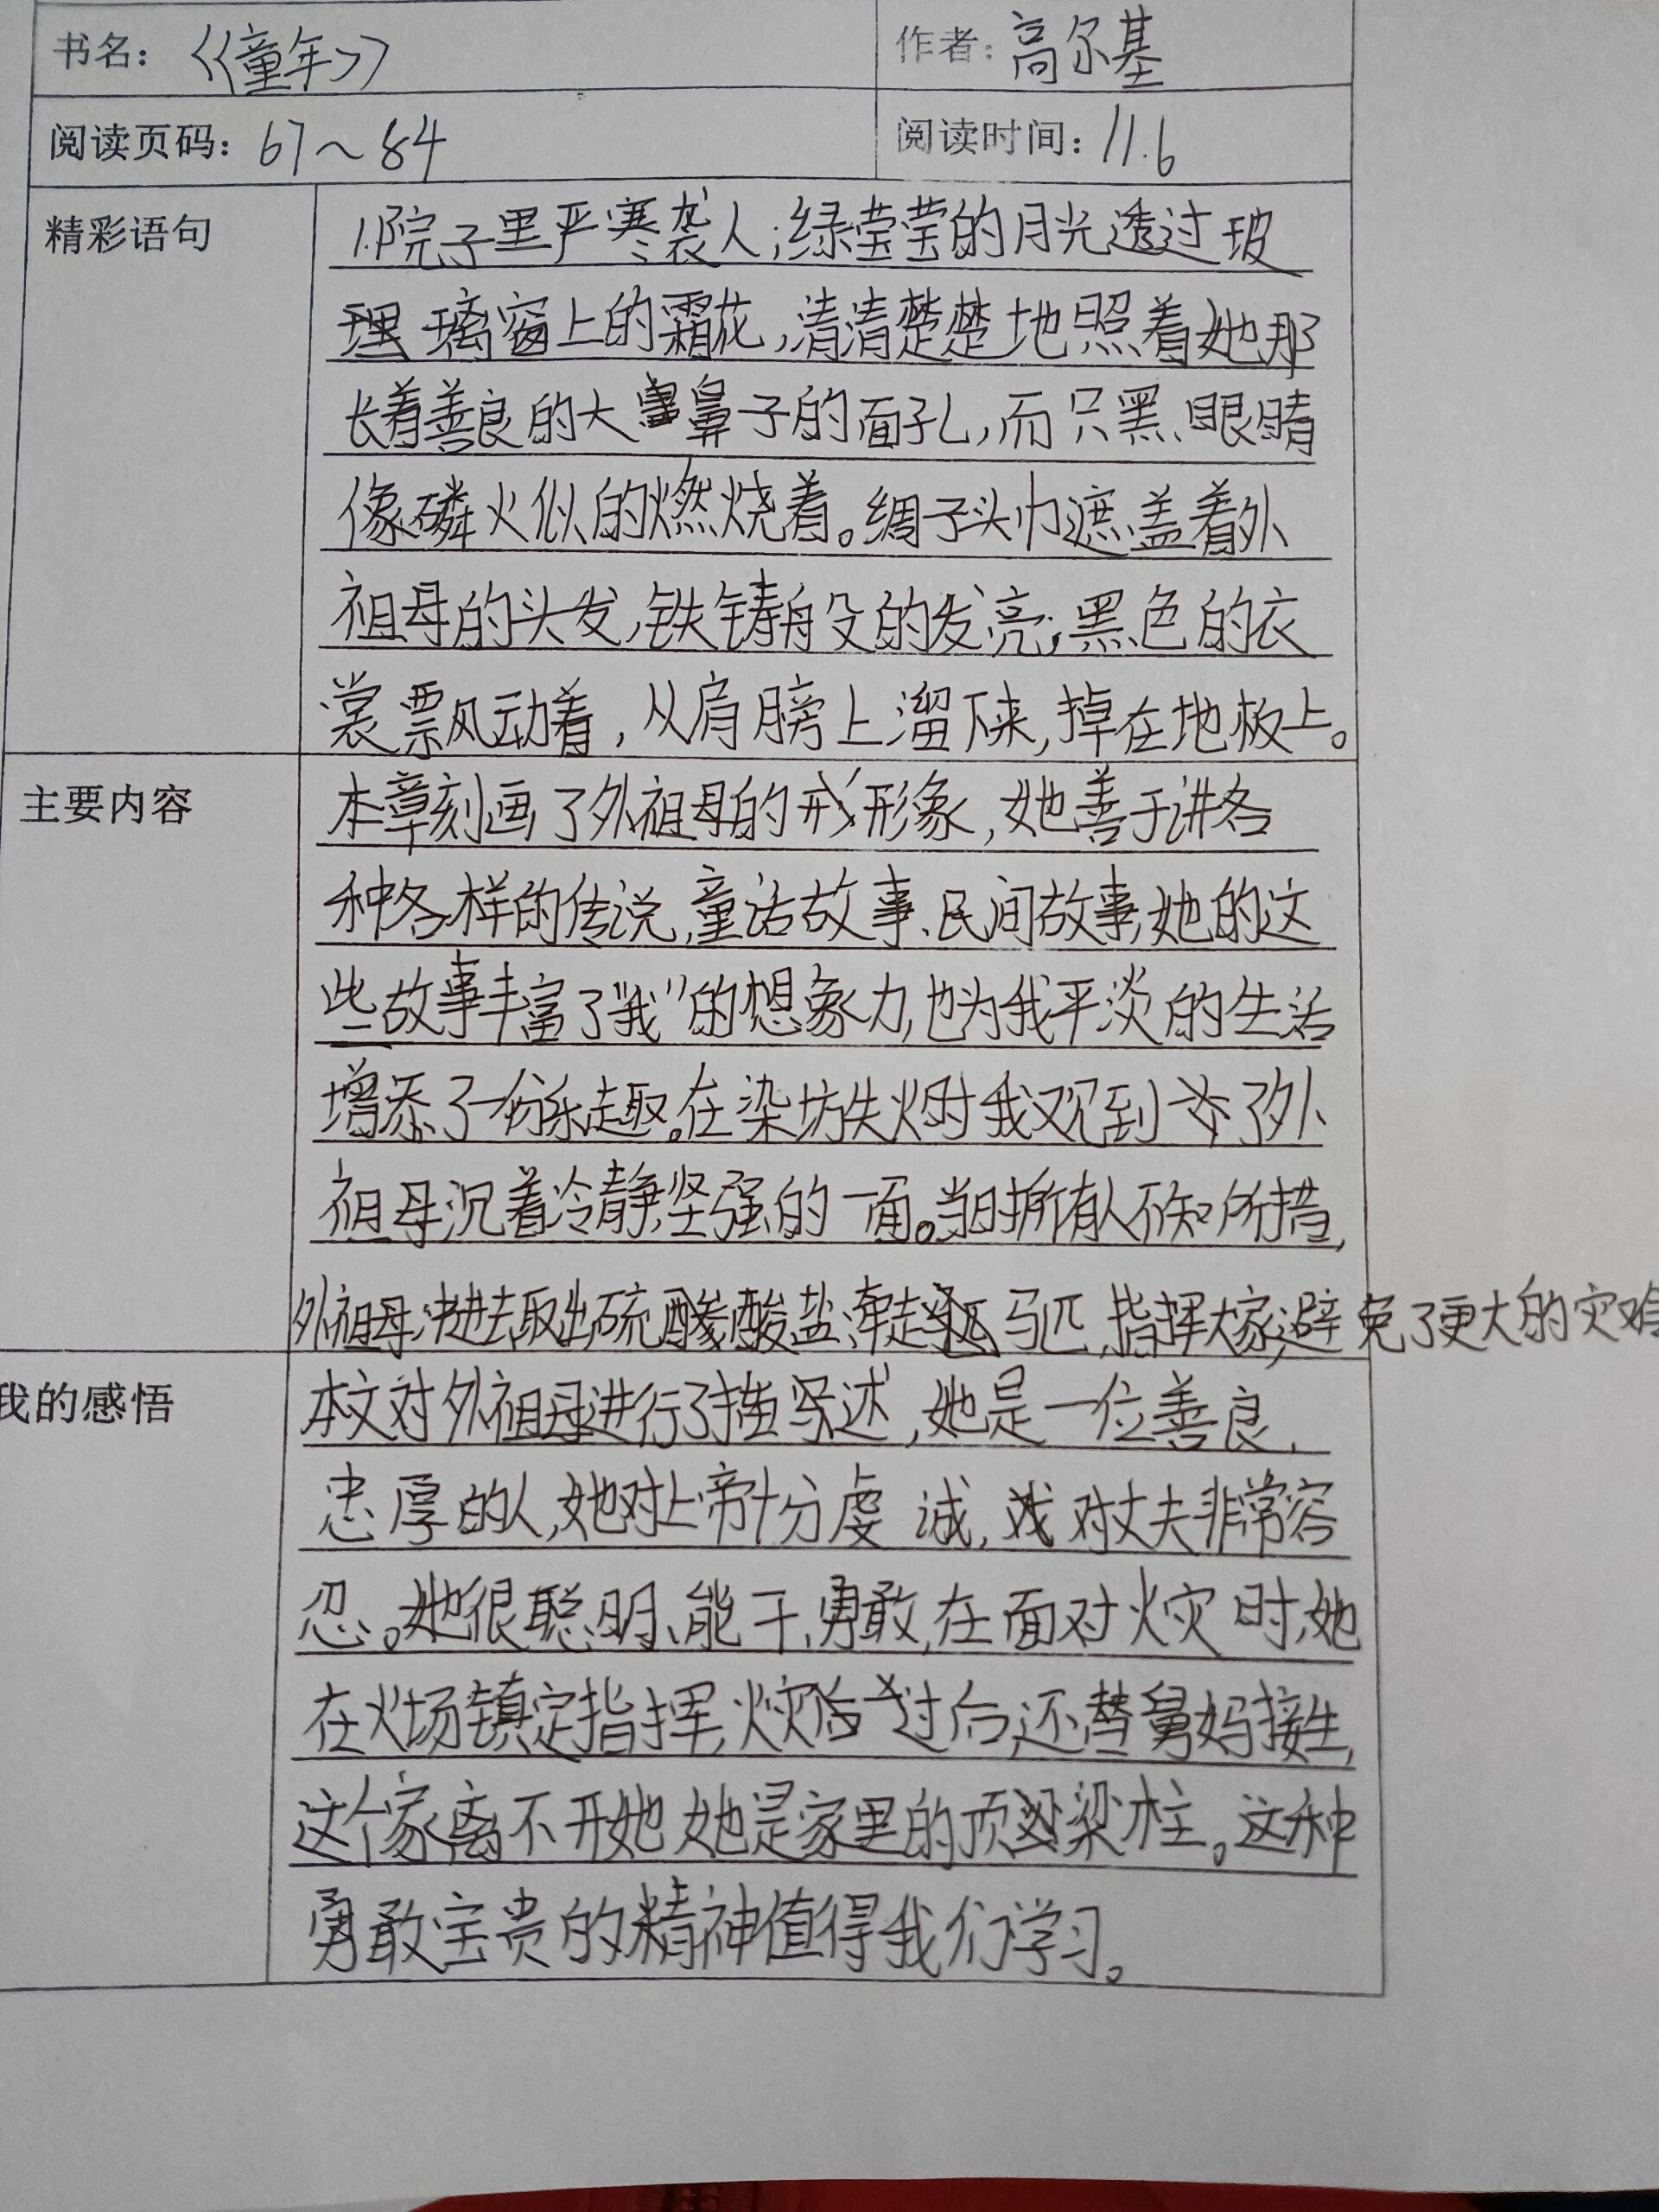 书名：《童年》 作者：高尔基
阅读页码：67～84 阅读时间：11.6
精彩语句 1.院子里严寒袭人；绿莹莹的月光透过玻
璃窗上的霜花，清清楚楚地照着她那
长着善良的大鼻子的面孔，而只黑眼睛
像磷火似的燃烧着。绸子头巾遮盖着外
祖母的头发，铁铸般的发亮；黑色的衣
裳飘动着，从肩膀上溜下来，掉在地板上。
主要内容 本章刻画了外祖母的形象，她善于讲各
种各样的传说，童话故事、民间故事，她的这
些故事丰富了“我”的想象力，也为我平淡的生活
增添了一份乐趣。在染坊失火时我观到了外
祖母沉着冷静，坚强的一面。当时所有人不知所措，
外祖母冲进去取出硫酸盐，牵走马匹，指挥大家，避免了更大的灾难
我的感悟 本文对外祖母进行了描述，她是一位善良，
忠厚的人，她对上帝十分虔诚，对丈夫非常容
忍。她很聪明、能干、勇敢，在面对火灾时，她
在火场镇定指挥，火灾过后，还替舅妈接生，
这个家离不开她，她是家里的顶梁柱。这种
勇敢宝贵的精神值得我们学习。